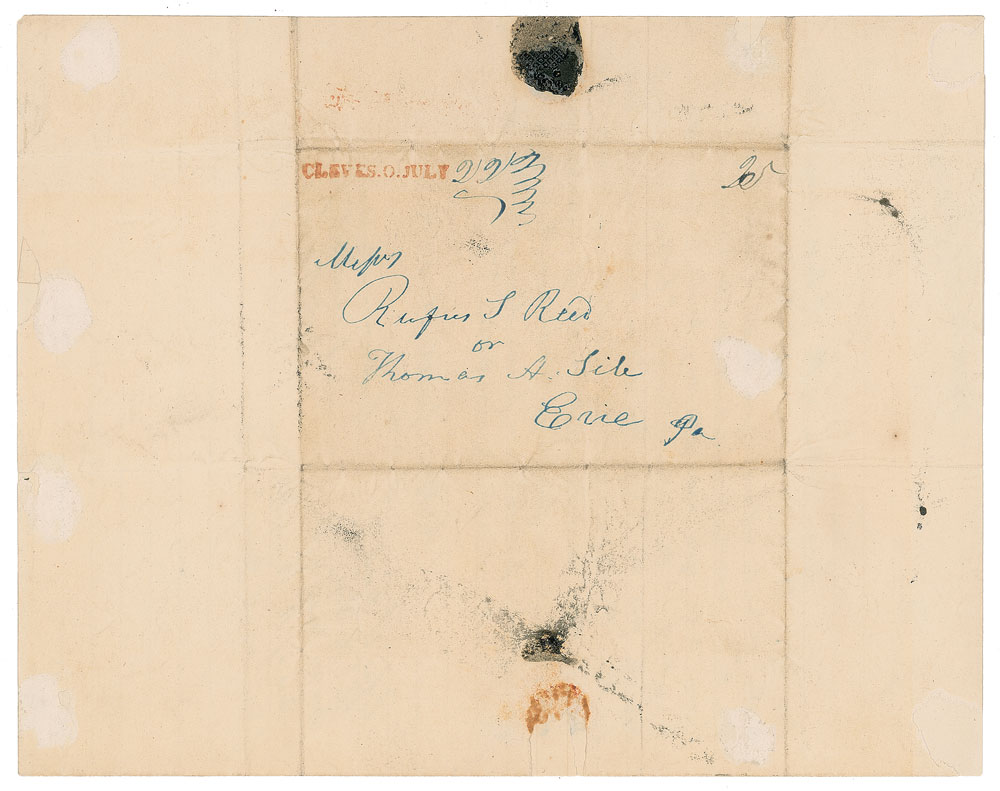 CLEVES.O.JULY 22
25
Messrs
Rufus S Reed
or
Thomas A. Sill
Erie Pa